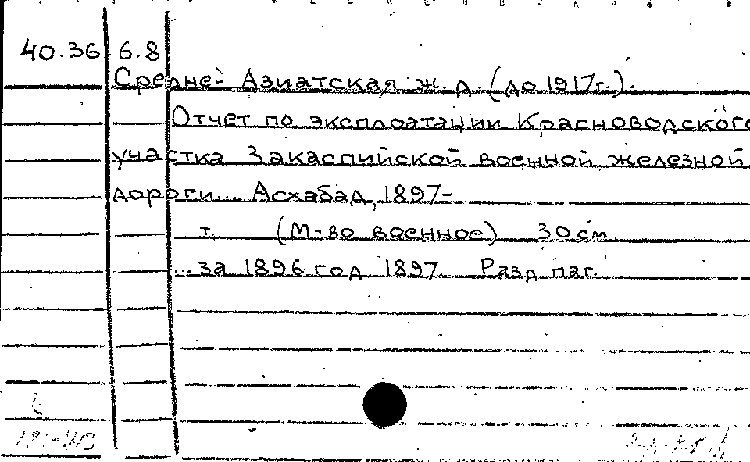 40.36 6.8
Средне-Азиатская ж.д. (до 1917г.).
Отчет по эксплоатации Красноводского
участка Закаспийской военной железной
дороги... Асхабад, 1897-
т. (М-во военное) 30см
...за 1896 год 1897. Разд. паг.